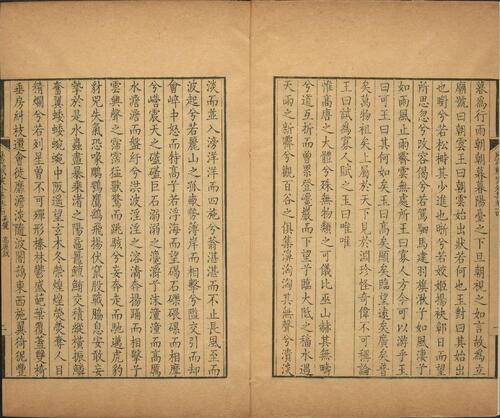 暮爲行雨朝朝暮暮陽臺之下旦朝視之如言故爲立
廟號曰朝雲王曰朝雲始出狀若何也玉對曰其始出
也㬣兮若松榯其少進也晣兮若姣姬揚袂鄣日而望
所思忽兮改容偈兮若駕駟馬建羽旗湫兮如風淒兮
如雨風止雨霽雲無處所王曰寡人方今可以游乎玉
曰可王曰其何如矣玉曰高矣顯矣臨望遠矣廣矣普
矣萬物祖矣上屬於天下見於淵珍怪奇偉不可稱論
王曰試爲寡人賦之玉曰唯唯
惟高唐之大體兮殊無物類之可儀比巫山赫其無疇
兮道互折而曾累登巉巖而下望兮臨大阺之稸水遇
天雨之新霽兮觀百谷之俱集濞洶洶其無聲兮潰淡
淡而並入滂洋洋而四施兮蓊湛湛而不止長風至而
波起兮若麗山之孤畝勢薄岸而相擊兮隘交引而却
會崪中怒而特高兮若浮海而望碣石礫磥磥而相摩
兮巆震天之礚礚巨石溺溺之瀺灂兮沫潼潼而高厲
水澹澹而盤紆兮洪波淫淫之溶㵝奔揚踊而相擊兮
雲興聲之霈霈猛獸驚而跳駭兮妄奔走而馳邁虎豹
豺兕失氣恐喙鵰鶚鷹鷂飛揚伏竄股戰脅息安敢妄
摯於是水蟲盡暴乘渚之陽黿鼉鱣鮪交積縱橫振鱗
奮翼蜲蜲蜿蜿中阪遙望玄木冬榮煌煌熒熒奪人目
精爛兮若列星曾不可殫形榛林鬱盛葩葉覆蓋雙椅
垂房糾枝還會徙靡澹淡隨波闇藹東西施翼猗狔豐